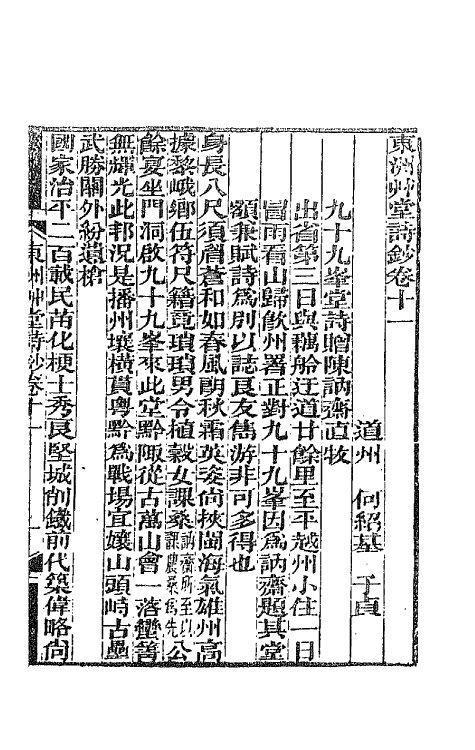 東洲艸堂詩鈔卷十一
道州 何紹基 子貞
九十九峯堂詩贈陳訥齋直牧
出省第三日與耦船迂道廿餘里至平越州小住一日
冒雨看山歸飲州署正對九十九峯因爲訥齋題其堂
額兼賦詩爲別以誌良友雋游非可多得也
身長八尺須眉蒼和如春風朗秋霜英姿尙挾閩海氣雄州高
據黎峨鄉伍符尺籍竟瑣瑣男令植穀女課桑訥齋所至以課農桑爲先公
餘夏坐門洞啟九十九峯來此堂黔陬從古萬山會一落蠻箐
無輝光此邦況是播州壤橫貫粵黔爲戰場宜孃山頭峙古壘
武勝關外紛遺槍
國家治平二百載民苗化梗士秀良堅城削鐵前代築偉略尙
東洲艸堂詩鈔卷十一